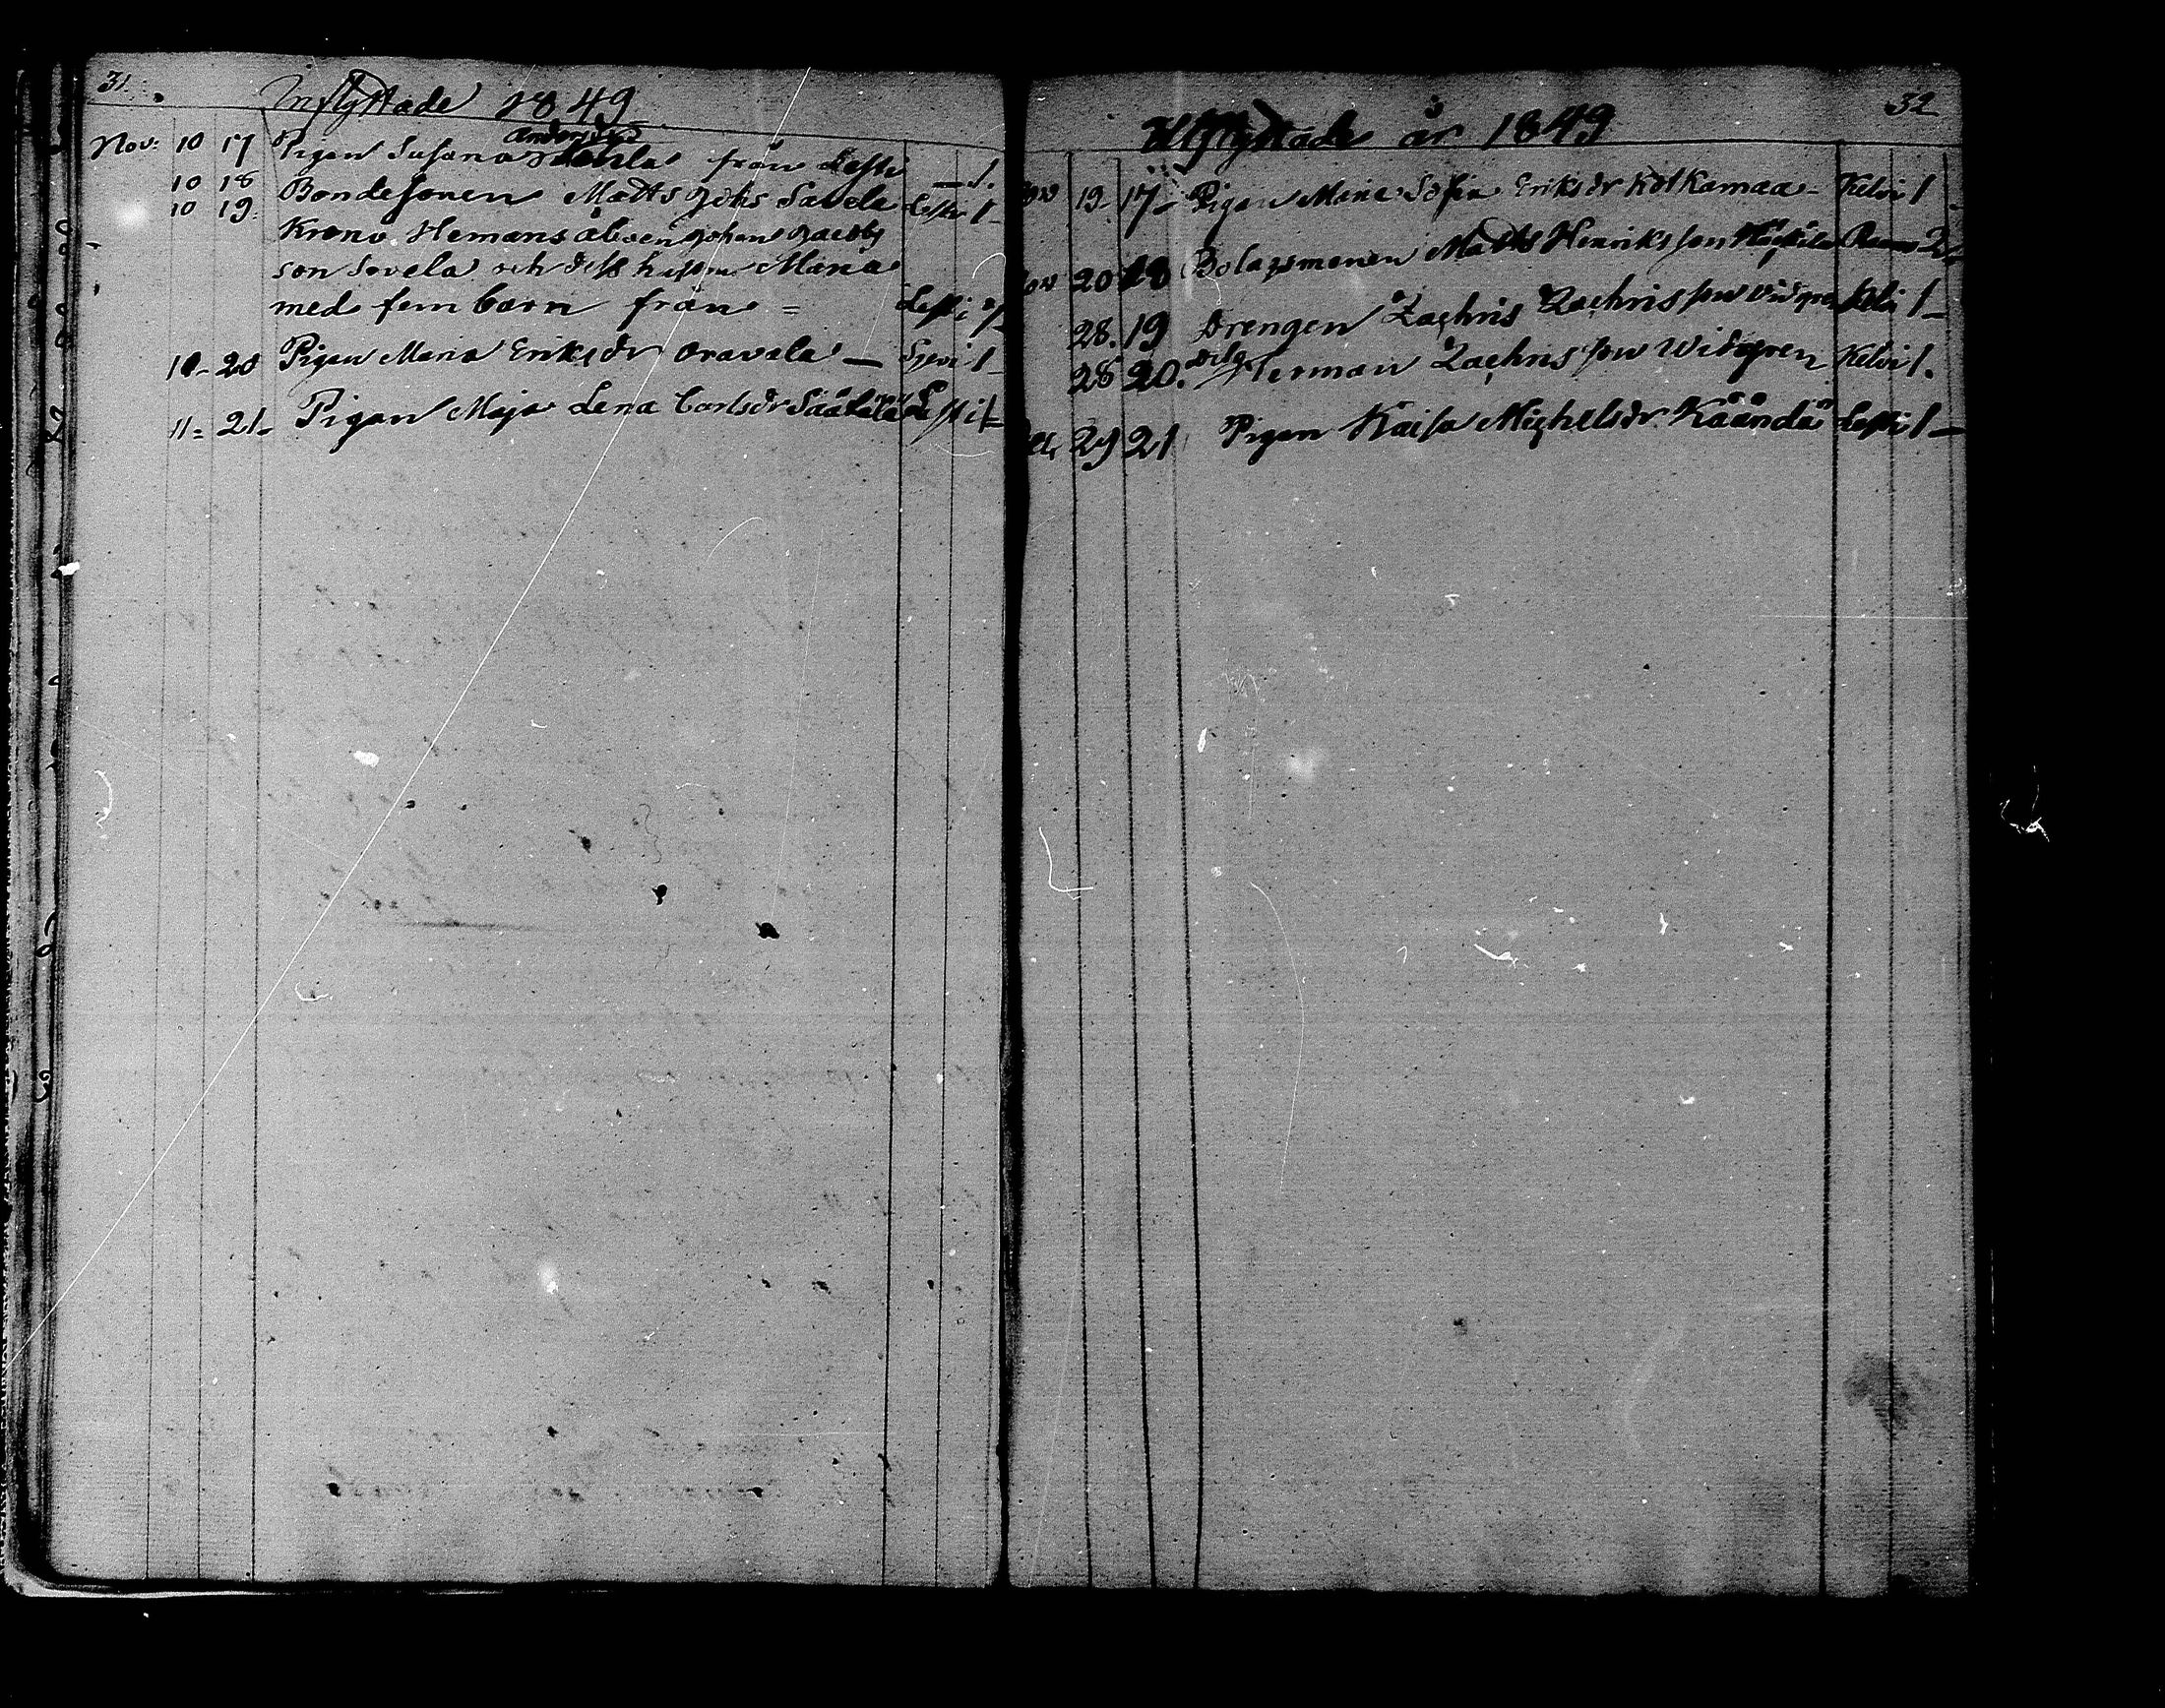 31.
Inflyttade 1849
Andersdr
Nov: 10 17 Pigan Susana från Lesti — 1.
10 18 Bondesonen Matts Johs Savela Lesti 1
10 19. Krono Hemans åboen Johan Jacobs
son Savela och dess hustru Maria
med fem barn från = Lesti
10 - 20 Pigan Maria Eriksdr Oravala — 1
11 - 21 - Pigan Maja Lena Carlsdr Säätälä Lesti 1
32
Utflyttade år 1849
Nov 19 17 - Pigan Maria Sofia Eriksdr Kotkamaa - Kelvi 1
Nov 20 18 Bolagsmannen Matts Henriksson 2
28. 19 Drengen Zachris Zachrisson Widgren Kelvi 1
28 20. Herman Zachrisson Widgren Kelvi 1.
29 21 Pigan Kaisa Michelsdr. Kääntä Lesti 1 —